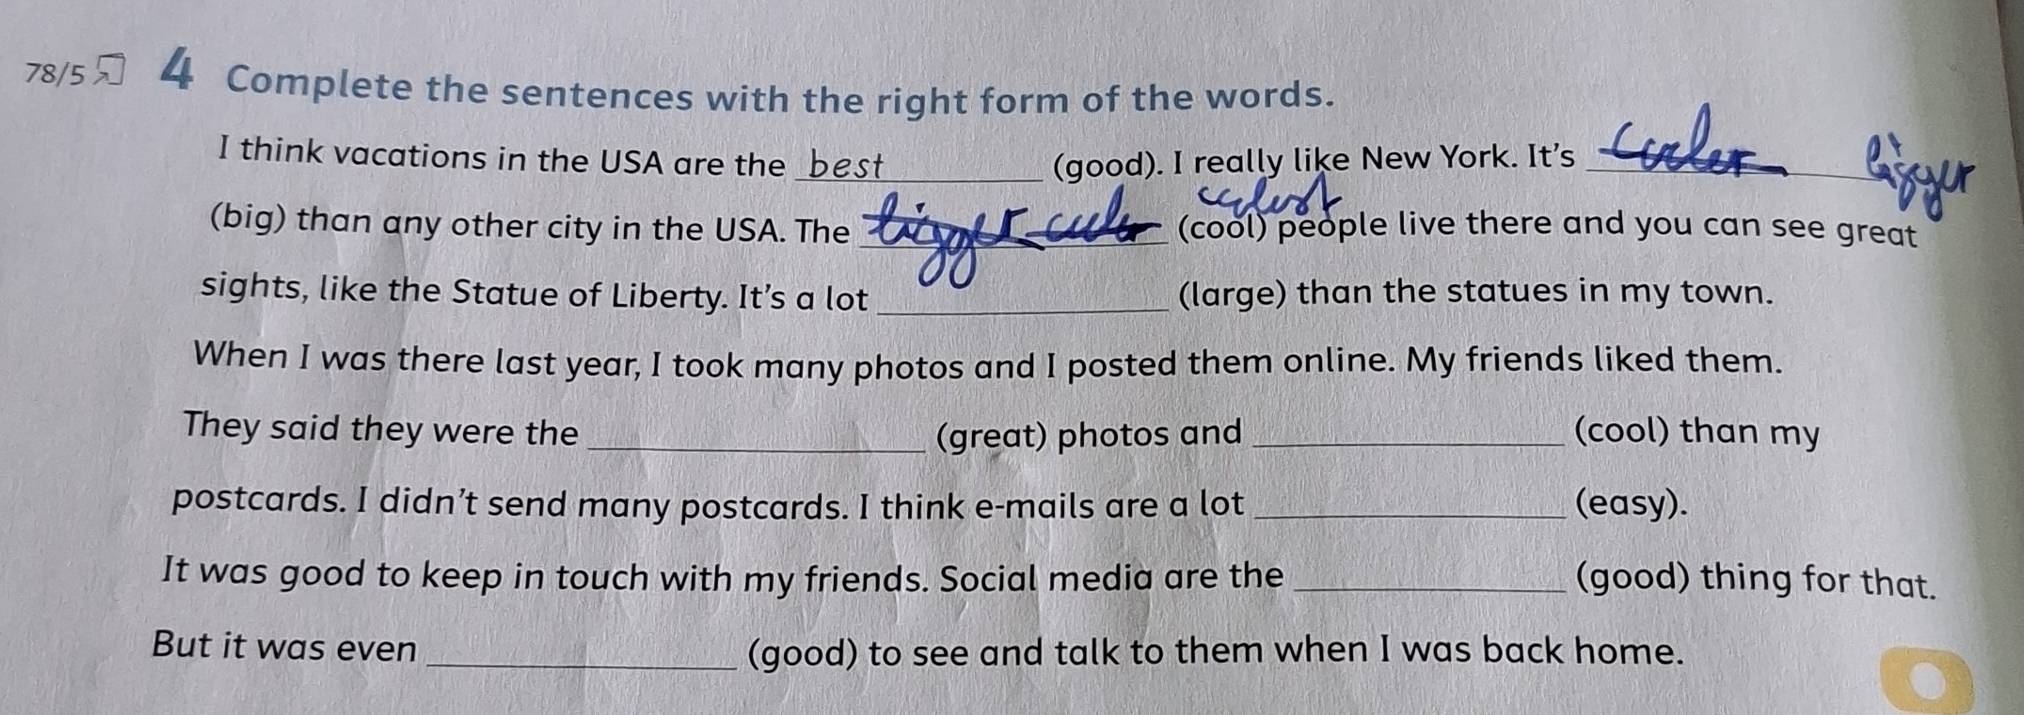 78/5 4 Complete the sentences with the right form of the words.
I think vacations in the USA are the best (good). I really like New York. It's cooler bigger
(big) than any other city in the USA. The bigger cooler coolest (cool) people live there and you can see great
sights, like the Statue of Liberty. It's a lot (large) than the statues in my town.
When I was there last year, I took many photos and I posted them online. My friends liked them.
They said they were the (great) photos and (cool) than my
postcards. I didn't send many postcards. I think e-mails are a lot (easy).
It was good to keep in touch with my friends. Social media are the (good) thing for that.
But it was even (good) to see and talk to them when I was back home.